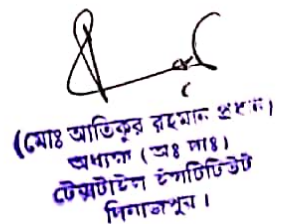 (মোঃ আতিকুর রহমান প্রধান)
অধ্যক্ষ (অঃ দাঃ)
টেক্সটাইল ইনস্টিটিউট
দিনাজপুর।